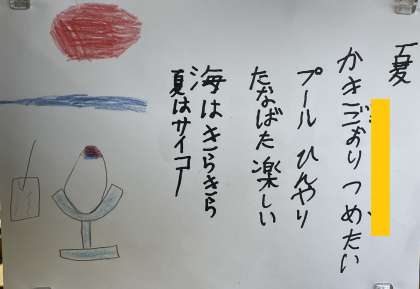 夏
かきごおり つめたい
プール ひんやり
たなばた楽しい
海はきらきら
夏はサイコー